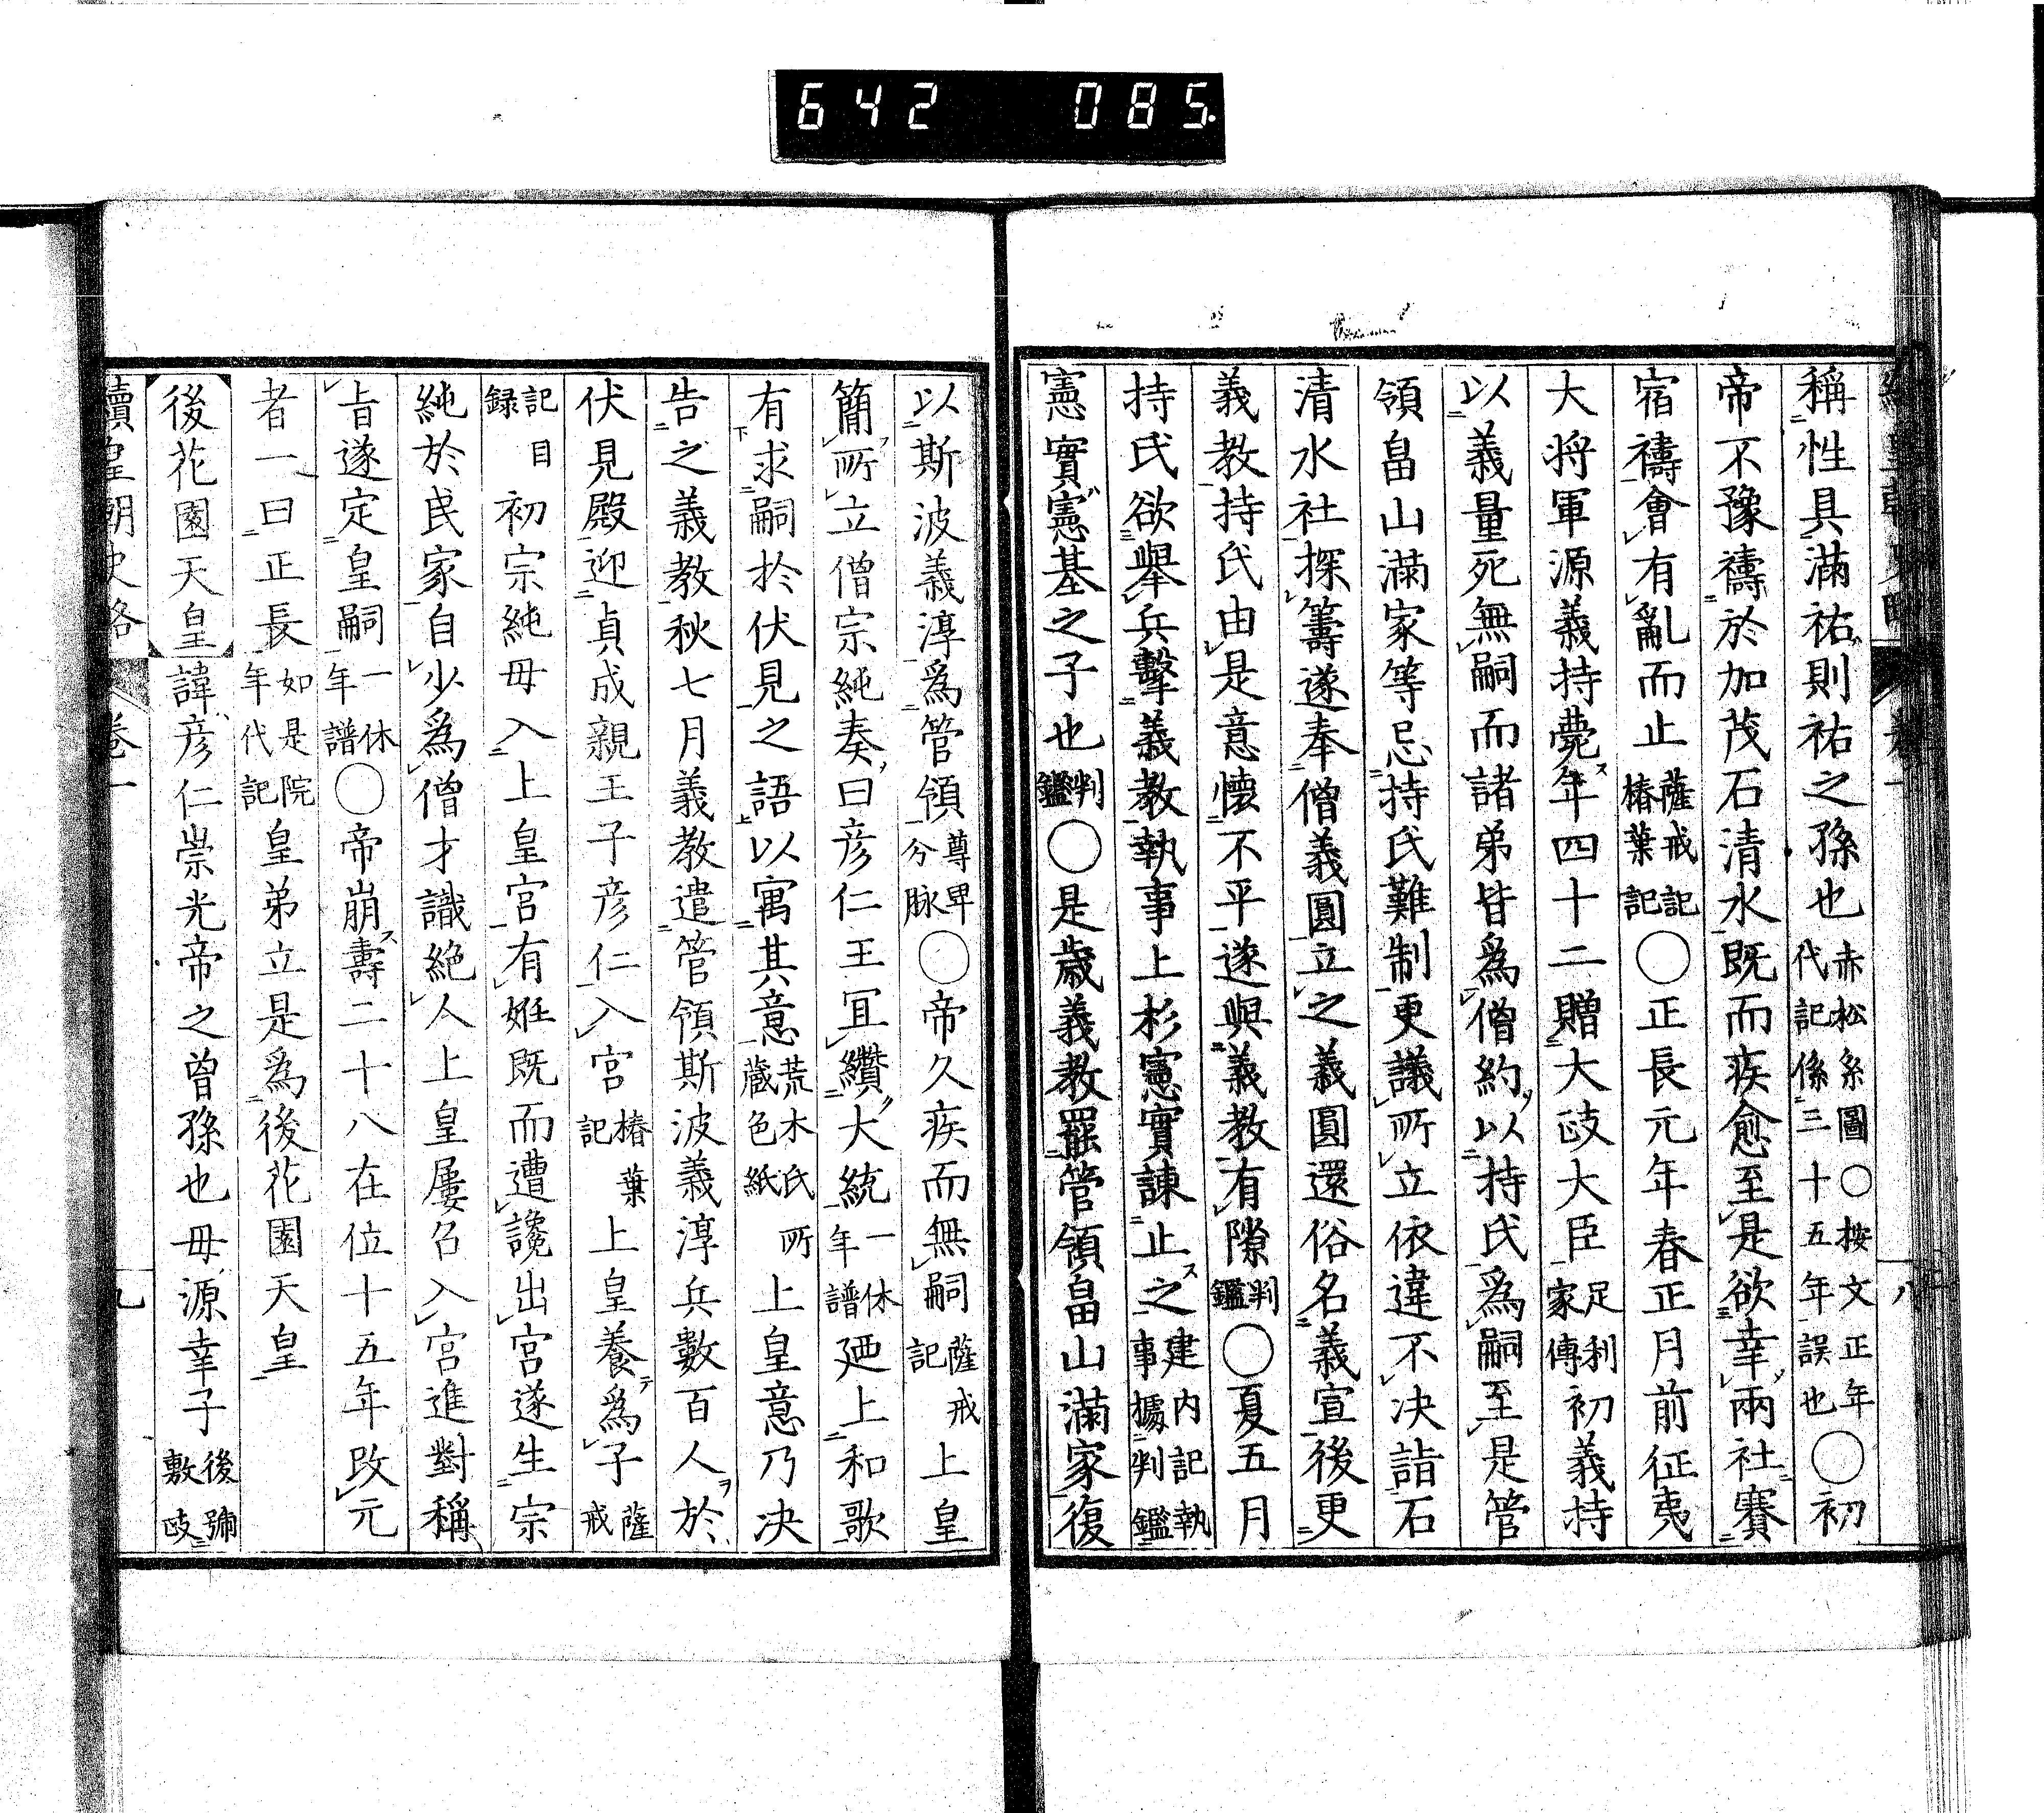 642 085
稱性具滿祐則祐之孫也赤松系圖○按文正年代記係三十五年誤也○初
帝不豫禱於加茂石清水既而疾愈至是欲幸兩社賽
宿禱會有亂而止薩戒記椿葉記○正長元年春正月前征夷
大将軍源義持薨年四十二贈大政大臣足利家傳初義持
以義量死無嗣而諸弟皆爲僧約以持氏爲嗣至是管
領畠山滿家等忌持氏難制更議所立依違不決詣石
清水社探籌遂奉僧義圓立之義圓還俗名義宣後更
義教持氏由是意懷不平遂與義教有隙判鑑○夏五月
持氏欲舉兵擊義教執事上杉憲實諫止之建内記執事據判鑑
憲實憲基之子也判鑑○是歲義教罷管領畠山滿家復
以斯波義淳爲管領尊卑分脉○帝久疾而無嗣薩戒記上皇
簡所立僧宗純奏曰彦仁王冝纘大統一休年譜廼上和歌
有求嗣於伏見之語以寓其意荒木氏所藏色紙上皇意乃決
告之義教秋七月義教遣管領斯波義淳兵數百人於
伏見殿迎貞成親王子彦仁入宮椿葉記上皇養爲子薩戒
記目録初宗純母入上皇宮有姙既而遭讒出宮遂生宗
純於民家自少爲僧才識絶人上皇屢召入宮進對稱
旨遂定皇嗣一休年譜○帝崩壽二十八在位十五年改元
者一曰正長如是院年代記皇弟立是爲後花園天皇
後花園天皇諱彦仁崇光帝之曾孫也母源幸子後號敷政
續皇朝史略 卷一 九